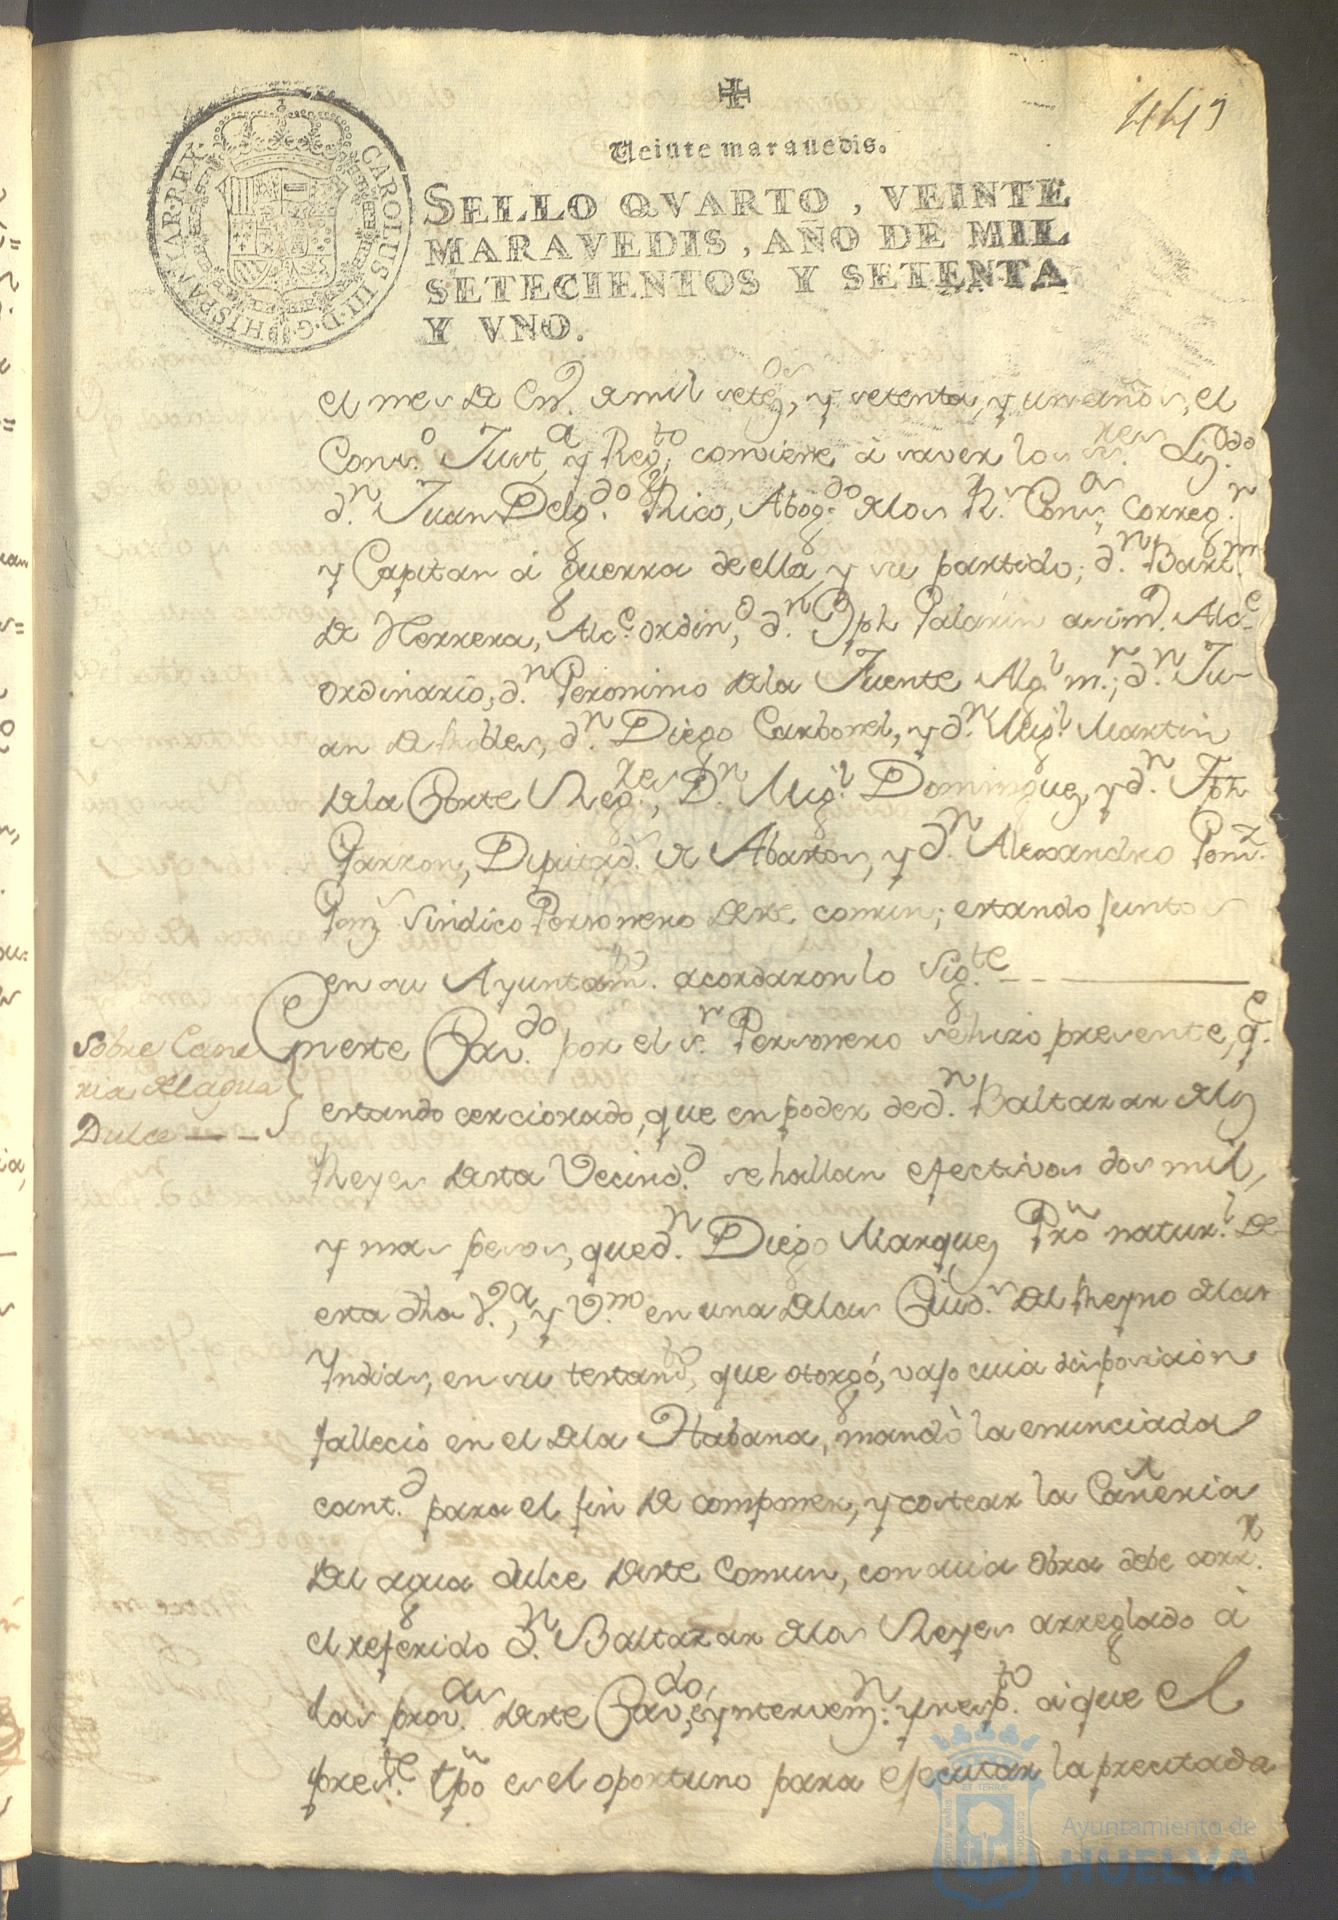 449
Veinte maravedis.
SELLO QVARTO, VEINTE
MARAVEDIS, AÑO DE MIL
SETECIENTOS Y SETENTA
Y VNO.
CAROLUS III D. G. HISPANIAR. REX
el mes de En.º de mil setez.os, y setenta, y un años, el
Cons.º Just.a y Reg.to conviene à saver los s.res Liz.do
d.n Juan Delg.do Rico, Abog.do de los R.s Cons.os Correg.r
y Capitan à guerra de ella y su partido; d.n Bart.me
de Herrera, Alc.e ordin.o, d.n Jph Palarin asim.o Alc.e
ordinario, d.n Geronimo de la Fuente Alg.l m.r; d.n Ju-
an de Robles, d.n Diego Carbonel, y d.n Mig.l Martin
de la Corte Reg.res, D.n Mig.l Dominguez, y d.n Jph
Garzon, Diputad.s de Abastos, y d.n Alexandro
Sindico Personero deste comun; estando juntos
en su Ayuntam.to acordaron lo Sig.te
Sobre Cañe
ria del agua
Dulce
En este Cav.do por el s.r Personero se hizo presente, q.e
estando cercionado, que en poder de d.n Baltazar de los
Reyes desta Vecind.d se hallan efectivos dos mil,
y mas pesos, que d.n Diego Marquez Prõ natur.l de
esta dha V.a, y V.no en una de las Ciud.s del Reyno de las
Yndias, en su testam.to, que otorgó, vajo cuia disposicion
falleció en el de la Habana, mandò la enunciada
cant.d para el fin de componer, y costear la Cañeria
del agua dulce deste Comun, con cuia obra debe corr.r
el referido D.n Baltazar de los Reyes arreglado à
las prov.as deste Cav.do, é yntervenz.n y resp.to à que el
pres.te tpõ es el oportuno para efecutar la precitada
Ayuntamiento de
HUELVA